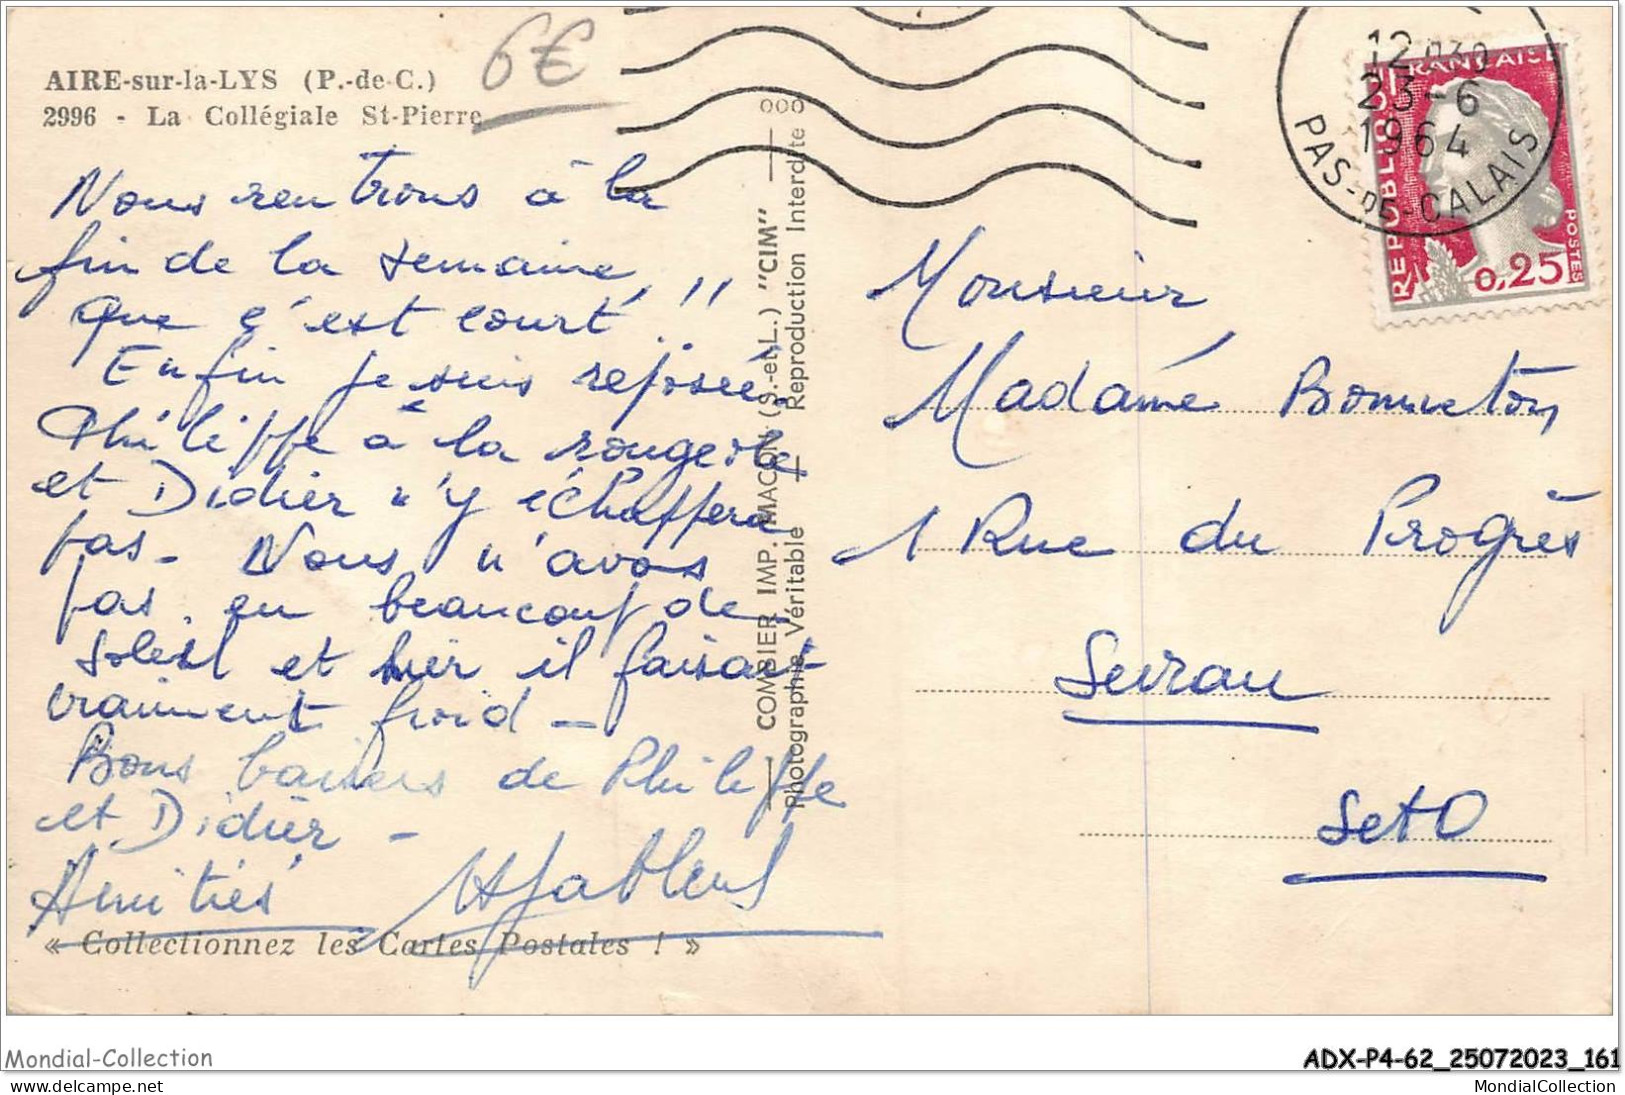 AIRE-sur-la-LYS (P.-de-C.)
2996 - La Collégiale St-Pierre
6€
Nous rentrons à la
fin de la semaine,
que c'est court !!
Enfin je suis reposée.
Philippe a la rougeole
et Didier n'y échappera
pas - Nous n'avons
pas eu beaucoup de
soleil et hier il faisait
vraiment froid -
Bons baisers de Philippe
et Didier -
Amitiés
« Collectionnez les Cartes Postales ! »
COMBIER IMP. MACON (S.-et-L.) "CIM"
Photographie Véritable - Reproduction Interdite
12H30
23-6
1964
PAS-DE-CALAIS
REPUBLIQUE FRANÇAISE
POSTES
0,25
Monsieur
Madame Bonneton
1 Rue du Progrès
Sevran
Set O
Mondial-Collection
ADX-P4-62_25072023_161
www.delcampe.net
MondialCollection